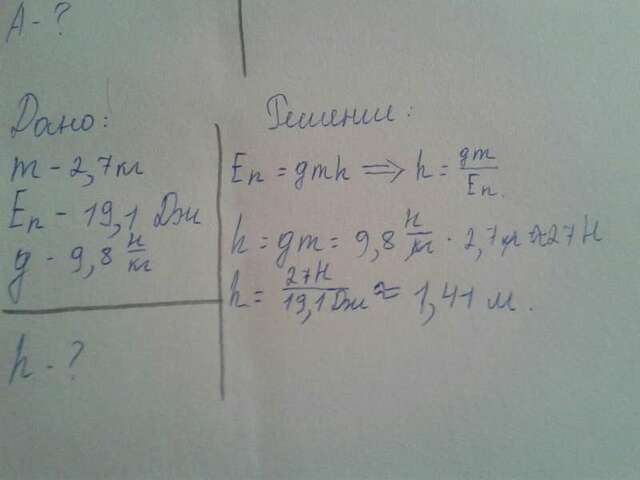 A - ?
Дано:
m - 2,7 кг
Eп - 19,1 Дж
g - 9,8 Н/кг
h - ?
Решение:
Eп = gmh => h = gm/Eп
h = gm = 9,8 Н/кг · 2,7 кг ≈ 27 Н
h = 27Н/19,1 Дж ≈ 1,41 м.